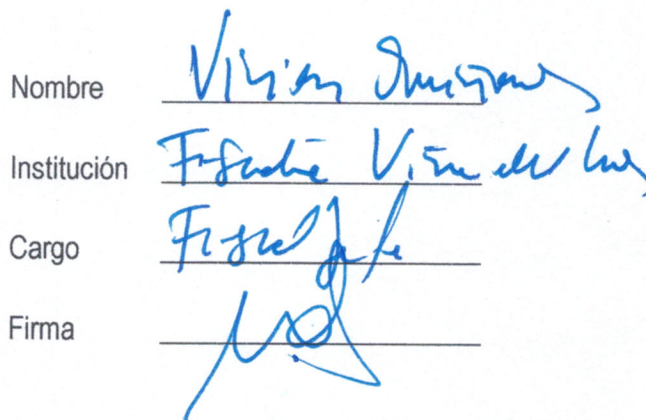 Nombre Vivian Quiñones
Institución Fiscalía Viña del Mar
Cargo Fiscal Jefe
Firma